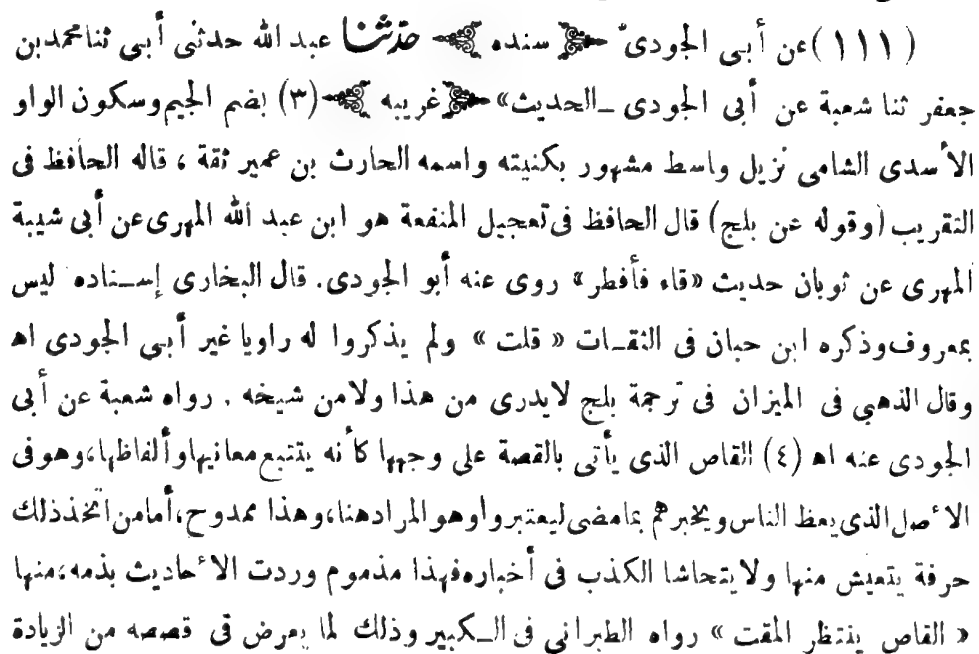 (١١١) عن أبى الجودى ﴿ سنده ﴾ حدّثنا عبد الله حدثنى أبى ثنا محمد بن
جعفر ثنا شعبة عن أبى الجودى ـ الحديث» ﴿ غريبه ﴾ (٣) بضم الجيم وسكون الواو
الأسدى الشامى نزيل واسط مشهور بكنيته واسمه الحارث بن عمير ثقة ، قاله الحافظ فى
التقريب (وقوله عن بلج) قال الحافظ فى تعجيل المنفعة هو ابن عبد الله المهرى عن أبى شيبة
المهرى عن ثوبان حديث «قاء فأفطر» روى عنه أبو الجودى. قال البخارى إسـناده ليس
بمعروف وذكره ابن حبان فى الثقـات « قلت » ولم يذكروا له راويا غير أبى الجودى اه
وقال الذهبي فى الميزان فى ترجمة بلج لا يدرى من هذا ولا من شيخه . رواه شعبة عن أبى
الجودى عنه اه (٤) القاص الذى يأتى بالقصة على وجهها كأنه يتتبع معانيها وألفاظها، وهو فى
الأصل الذى يعظ الناس ويخبرهم بما مضى ليعتبروا وهو المراد هنا، وهذا ممدوح، أما من اتخذ ذلك
حرفة يتعيش منها ولا يتحاشا الكذب فى أخباره فهذا مذموم وردت الأحاديث بذمه، منها
« القاص ينتظر المقت » رواه الطبرانى فى الـكبير وذلك لما يعرض فى قصصه من الزيادة